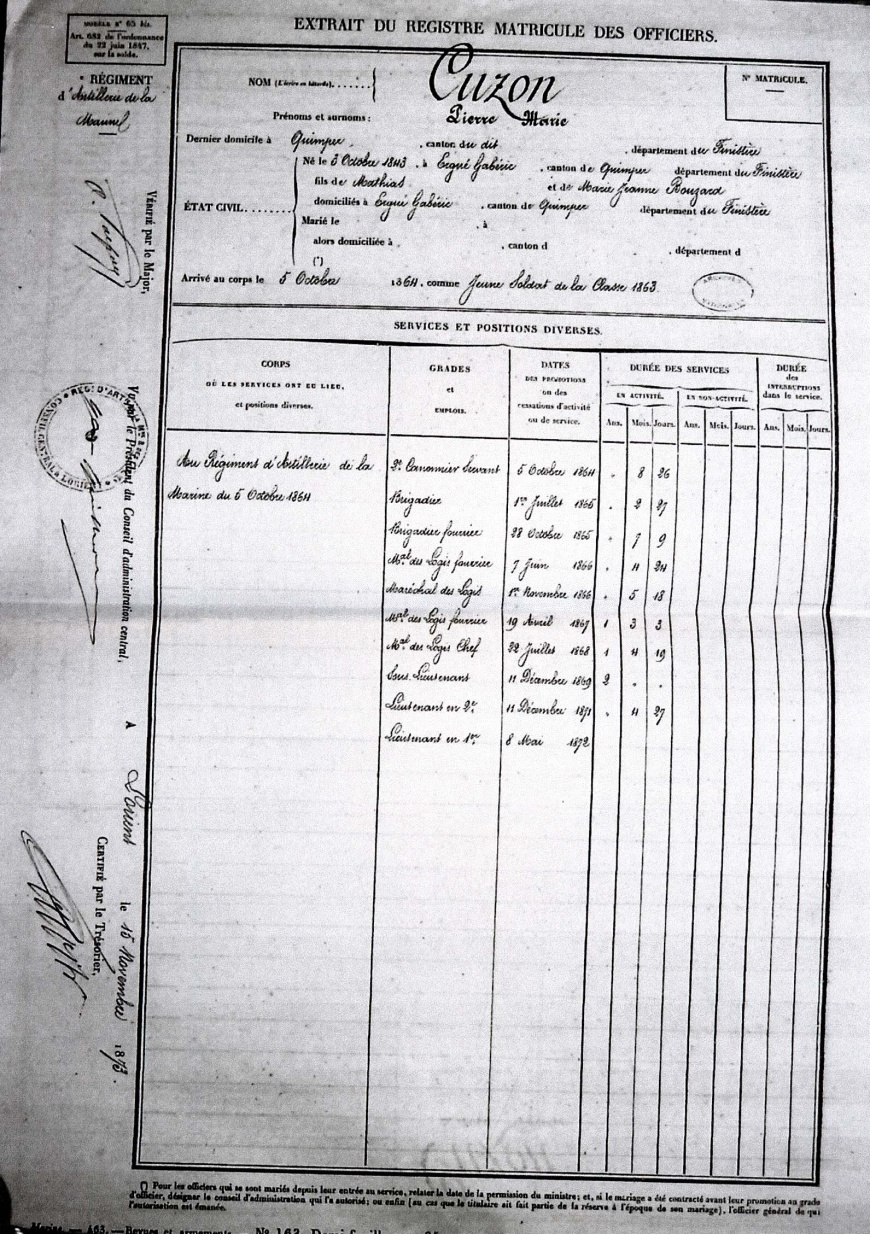 EXTRAIT DU REGISTRE MATRICULE DES OFFICIERS.
MODÈLE N° 65 bis.
Art. 682 de l'ordonnance
du 22 juin 1847,
sur la solde.
RÉGIMENT
d'Artillerie de la
Marine
NOM (L'écrire en bâtarde)....... Cuzon
N° MATRICULE.
Prénoms et surnoms : Pierre Marie
Dernier domicile à Quimper, canton du dit, département du Finistère
ÉTAT CIVIL.......
Né le 3 Octobre 1843, à Ergué Gabéric, canton de Quimper département du Finistère
fils de Mathias et de Marie Jeanne Bouzard
domiciliés à Ergué Gabéric, canton de Quimper département du Finistère
Marié le , à
alors domiciliée à , canton d , département d
(*)
Arrivé au corps le 5 Octobre 1864, comme Jeune Soldat de la Classe 1863.
ARCHIVES NATIONALES
SERVICES ET POSITIONS DIVERSES.
CORPS
OÙ LES SERVICES ONT EU LIEU,
et positions diverses.
GRADES
et
EMPLOIS.
DATES
DES PROMOTIONS
ou des
cessations d'activité
ou de service.
DURÉE DES SERVICES
EN ACTIVITÉ. EN NON-ACTIVITÉ.
DURÉE
des
INTERRUPTIONS
dans le service.
Ans. Mois. Jours. Ans. Mois. Jours. Ans. Mois. Jours.
Au Régiment d'Artillerie de la 2e Canonnier Servant 5 Octobre 1864 " 8 26
Marine du 5 Octobre 1864 Brigadier 1er Juillet 1865 " 2 27
Brigadier fourrier 28 Octobre 1865 " 7 9
Mal des Logis fourrier 7 Juin 1866 " 4 24
Maréchal des Logis 1er Novembre 1866 " 5 18
Mal des Logis fourrier 19 Avril 1867 1 3 3
Mal des Logis Chef 22 Juillet 1868 1 4 19
Sous Lieutenant 11 Décembre 1869 2 " "
Lieutenant en 2e 11 Décembre 1871 " 4 27
Lieutenant en 1er 8 Mai 1872
Vérifié par le Major,
Vu par le Président du Conseil d'administration central,
CONSEIL CENTRAL LORIENT
A Lorient le 15 Novembre 1873.
CERTIFIÉ par le Trésorier,
(*) Pour les officiers qui se sont mariés depuis leur entrée au service, relater la date de la permission du ministre; et, si le mariage a été contracté avant leur promotion au grade
d'officier, désigner le conseil d'administration qui l'a autorisé; ou enfin (au cas que le titulaire ait fait partie de la réserve à l'époque de son mariage), l'officier général de qui
l'autorisation est émanée.
Marine. — 463. — Revues et armements.